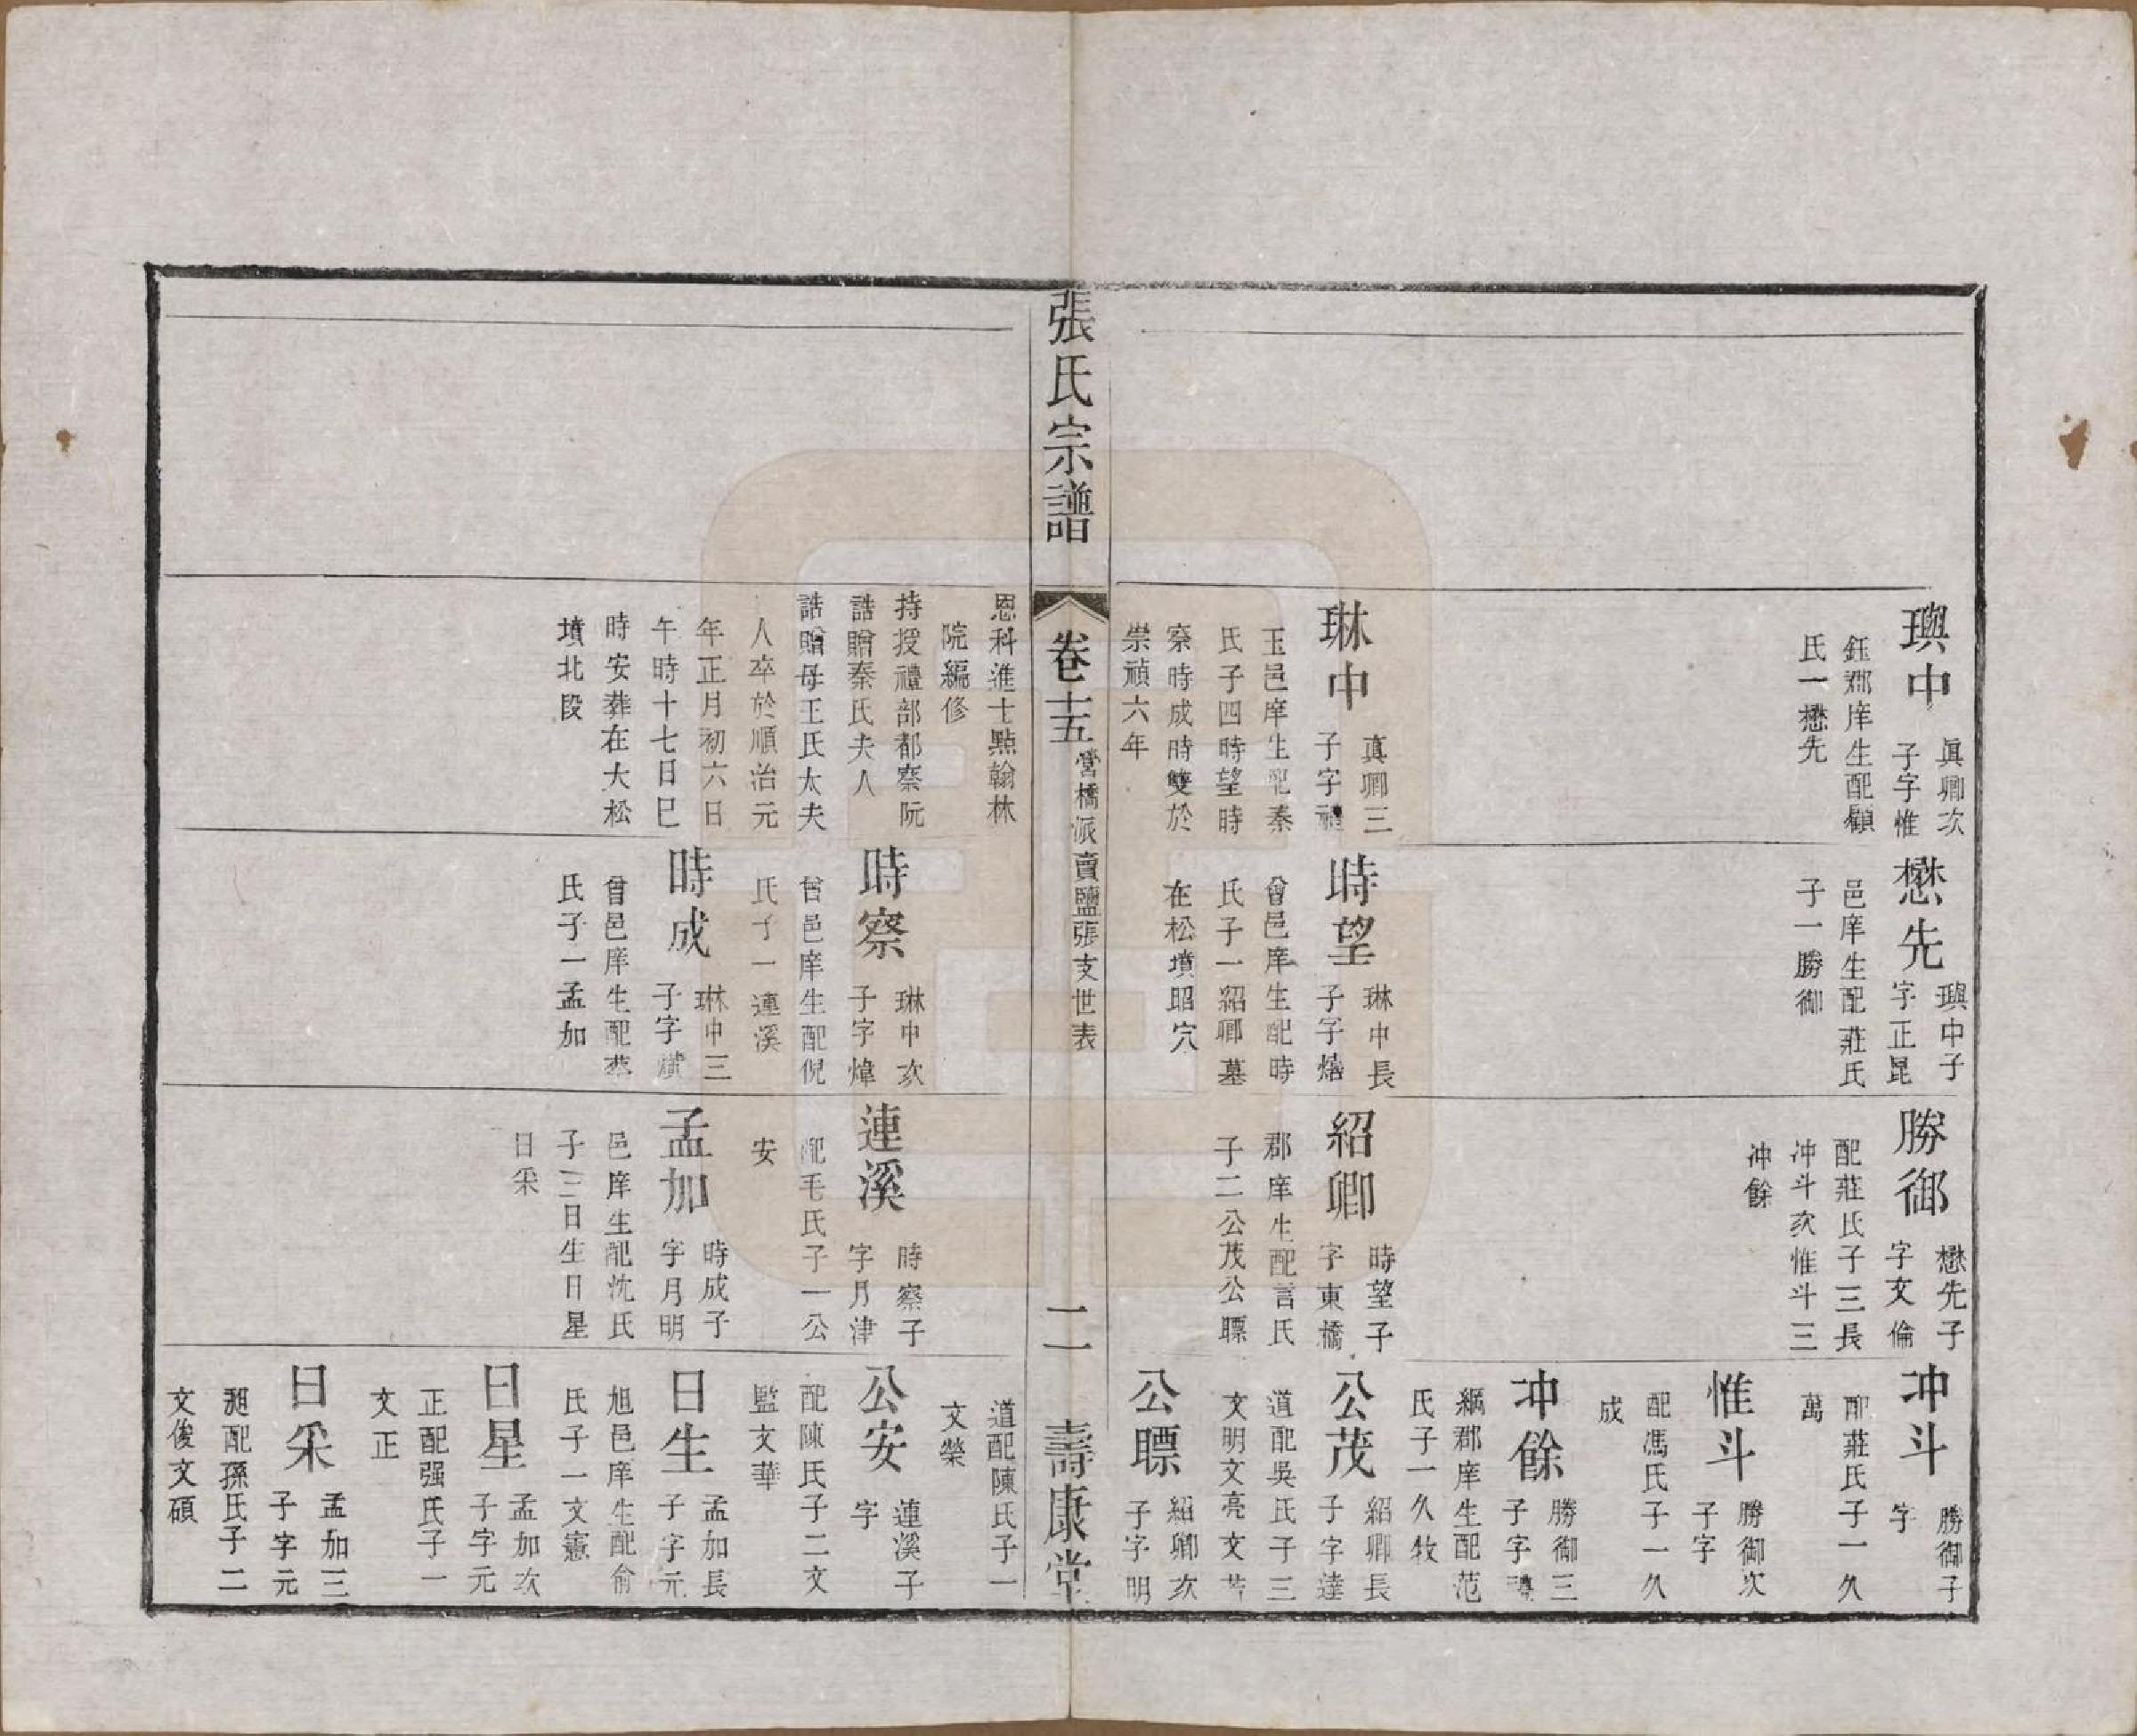 璵中
眞卿次
子字惟
鈺郡庠生配顧
氏一懋先
琳中
真卿三
子字
玉邑庠生配秦
氏子四時望時
察時成時雙於
崇禎六年
懋先
璵中子
字正昆
邑庠生配莊氏
子一勝御
時望
琳中長
子字熺
曾邑庠生配時
氏子一紹卿墓
在松墳昭穴
勝御
懋先子
字文倫
配莊氏子三長
冲斗次惟斗三
冲餘
紹卿
時望子
字東橋
郡庠生配言氏
子二公茂公瞟
冲斗
勝御子
字
配莊氏子一久
萬
惟斗
勝御次
子字
配馮氏子一久
成
冲餘
勝御三
子字
綱郡庠生配范
氏子一久牧
公茂
紹卿長
子字達
道配吳氏子三
文明文亮文
公瞟
紹卿次
子字明
張氏宗譜
卷十五
營橋派賣鹽張支世表
二
壽康堂
恩科進士點翰林
院編修
持授禮部都察阮
誥贈秦氏夫人
誥贈母王氏太夫
人卒於順治元
年正月初六日
午時十七日巳
時安葬在大松
墳北段
時察
琳中次
子字煒
曾邑庠生配倪
氏子一連溪
時成
琳中三
子字
曾邑庠生配蔡
氏子一孟加
連溪
時察子
字月津
配毛氏子一公
安
孟加
時成子
字月明
邑庠生配沈氏
子三日生日星
日采
道配陳氏子一
文榮
公安
蓮溪子
字
配陳氏子二文
監文華
日生
孟加長
子字元
旭邑庠生配俞
氏子一文憲
日星
孟加次
子字元
正配强氏子一
文正
日采
孟加三
子字元
昶配孫氏子二
文俊文碩